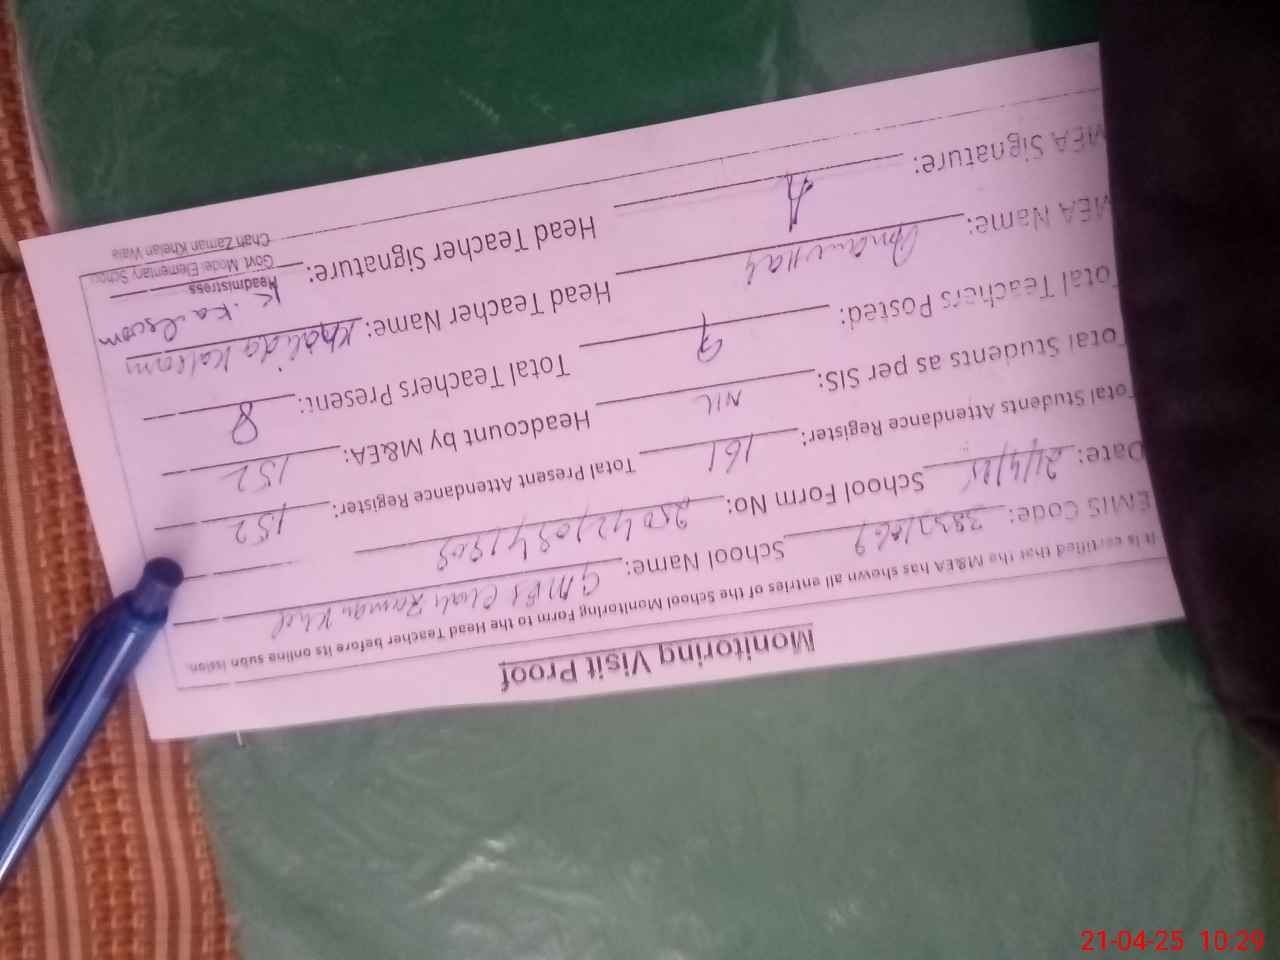 Monitoring Visit Proof
It is certified that the M&EA has shown all entries of the School Monitoring Form to the Head Teacher before its online submission.
EMIS Code: School Name: Chah Zaman Khel
Date: 21/4/25 School Form No:
Total Students Attendance Register: 161 Total Present Attendance Register: 152
Total Students as per SIS: NIL Headcount by M&EA: 152
Total Teachers Posted: 9 Total Teachers Present: 8
MEA Name: Head Teacher Name: Khalida Kalsom
MEA Signature: Head Teacher Signature: K. Kalsoom
Headmistress
Govt. Model Elementary School
Chah Zaman Khelan Wala
21-04-25 10:29